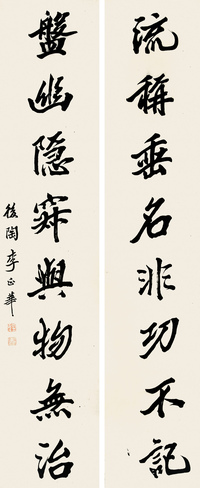 流稱垂名非功不記
盤幽隱穽與物無治
後陶李正華